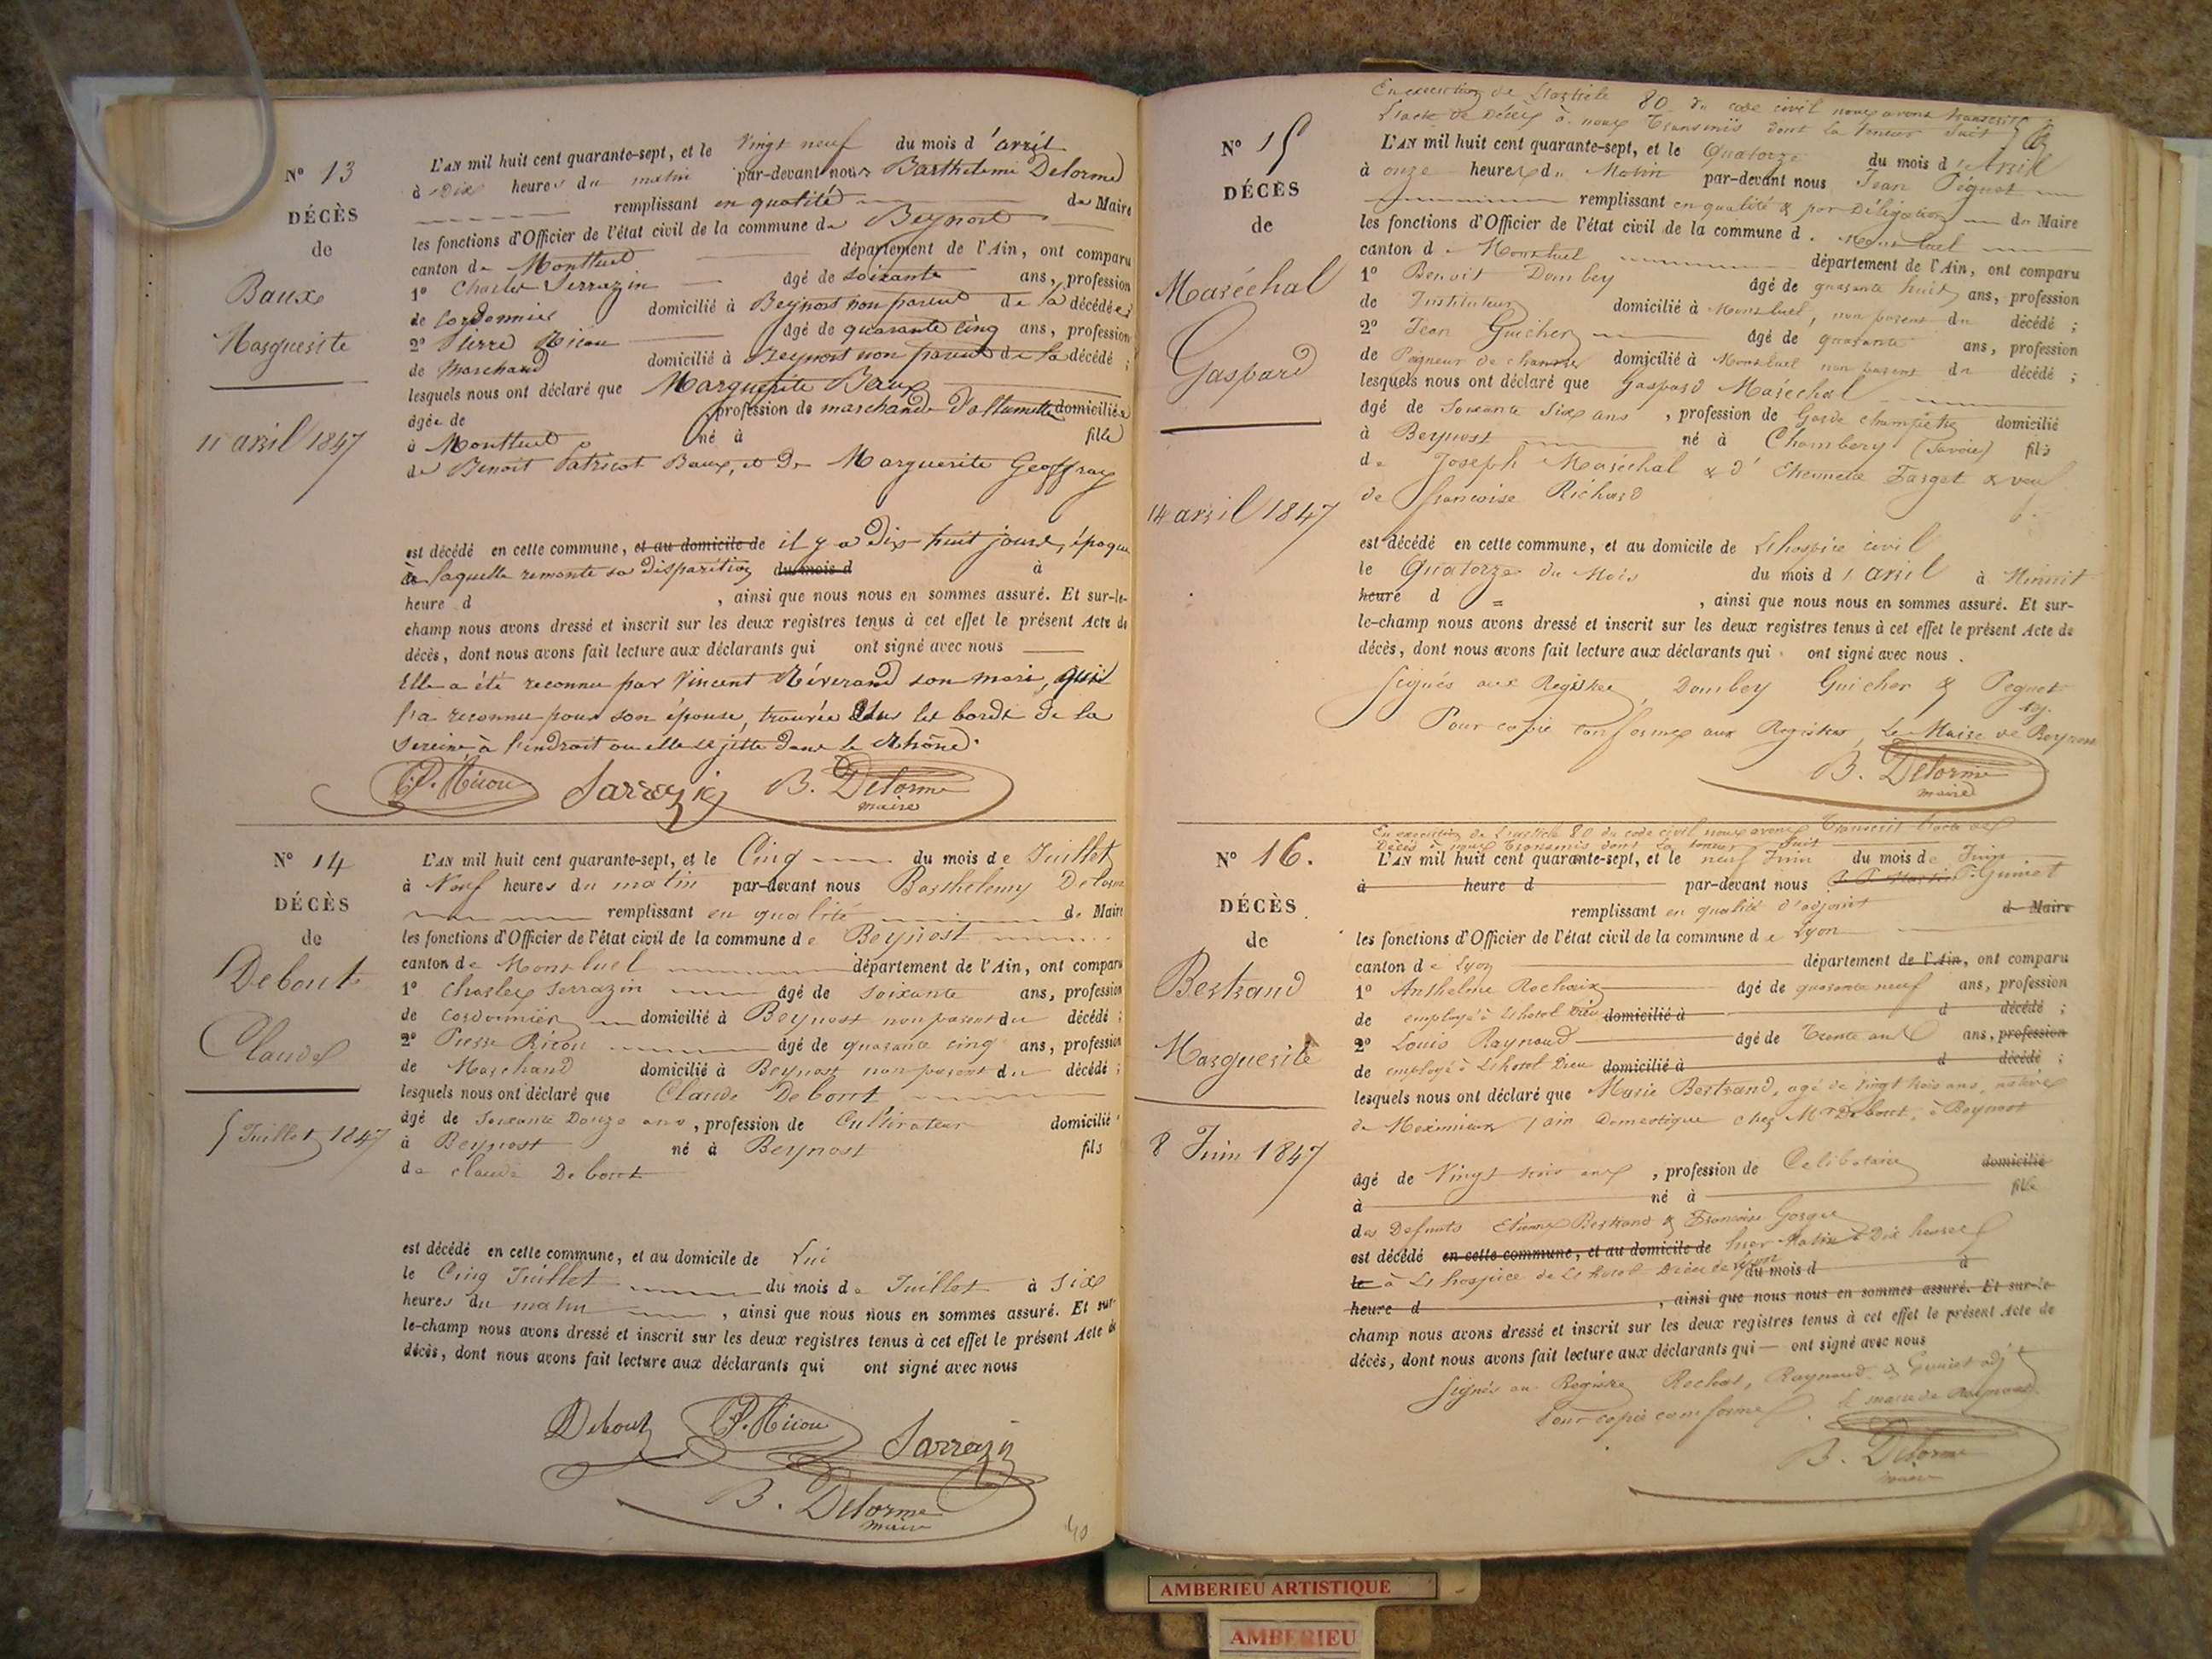 Nº 13
DÉCÈS
de
Baux
Marguerite
11 avril 1847
L'AN mil huit cent quarante-sept, et le Vingt neuf du mois d'avril
à Dix heures du matin par-devant nous Barthelemi Delorme
remplissant en qualité de Maire
les fonctions d'Officier de l'état civil de la commune de Beynost
canton de Montluel département de l'Ain, ont comparu
1º Charles Serrazin âgé de soixante ans, profession
de Cordonnier domicilié à Beynost non parent de la décédée
2º Pierre Micou âgé de quarante cinq ans, profession
de Marchand domicilié à Beynost non parent de la décédé ;
lesquels nous ont déclaré que Marguerite Baux
âgée de profession de marchande d'allumettes domiciliée
à Montluel né à fille
de Benoit Patricot Baux, et de Marguerite Geoffray
est décédé en cette commune, et au domicile de il y a dix huit jours, époque
à laquelle remonte sa disparition du mois d à
heure d , ainsi que nous nous en sommes assuré. Et sur-le-
champ nous avons dressé et inscrit sur les deux registres tenus à cet effet le présent Acte de
décès, dont nous avons fait lecture aux déclarants qui ont signé avec nous
Elle a été reconnue par Vincent Réverand son mari, qui
l'a reconnue pour son épouse, trouvée sur les bords de la
Sereine à l'endroit ou elle se jette dans le Rhône.
P. Micou Sarrazin B. Delorme
maire
Nº 14
DÉCÈS
de
Debout
Claude
5 Juillet 1847
L'AN mil huit cent quarante-sept, et le Cinq du mois de Juillet
à Neuf heures du matin par-devant nous Barthelemy Delorme
remplissant en qualité de Maire
les fonctions d'Officier de l'état civil de la commune de Beynost
canton de Montluel département de l'Ain, ont comparu
1º Charles Serrazin âgé de soixante ans, profession
de Cordonnier domicilié à Beynost non parent du décédé ;
2º Pierre Ricou âgé de quarante cinq ans, profession
de Marchand domicilié à Beynost non parent du décédé ;
lesquels nous ont déclaré que Claude Debout
âgé de soixante Douze ans, profession de Cultivateur domicilié
à Beynost né à Beynost fils
de claude Debout
est décédé en cette commune, et au domicile de Lui
le Cinq Juillet du mois de Juillet à six
heures du matin , ainsi que nous nous en sommes assuré. Et sur-
le-champ nous avons dressé et inscrit sur les deux registres tenus à cet effet le présent Acte de
décès, dont nous avons fait lecture aux déclarants qui ont signé avec nous
Debout P. Micou Sarrazin
B. Delorme
maire
En execution de L'article 80 du code civil nous avons transcrit
L'acte de Décès à nous Transmis dont la teneur suit
Nº 15
DÉCÈS
de
Maréchal
Gaspard
14 avril 1847
L'AN mil huit cent quarante-sept, et le Quatorze du mois d'Avril
à onze heures du Matin par-devant nous Jean Péguet
remplissant en qualité & par Délégation du Maire
les fonctions d'Officier de l'état civil de la commune de Montluel
canton de Montluel département de l'Ain, ont comparu
1º Benoit Dombey âgé de quarante huit ans, profession
de Instituteur domicilié à Montluel, non parent du décédé ;
2º Jean Guicher âgé de quarante ans, profession
de Peigneur de chanvre domicilié à Montluel non parent du décédé ;
lesquels nous ont déclaré que Gaspard Maréchal
âgé de soixante six ans , profession de Garde champêtre domicilié
à Beynost né à Chambery (Savoie) fils
de Joseph Maréchal & d' Etiennette Farget & veuf
de françoise Richard
est décédé en cette commune, et au domicile de L'hospice civil
le Quatorze du Mois du mois d'avril à Minuit
heure d , ainsi que nous nous en sommes assuré. Et sur-
le-champ nous avons dressé et inscrit sur les deux registres tenus à cet effet le présent Acte de
décès, dont nous avons fait lecture aux déclarants qui ont signé avec nous.
Signés aux Registres, Dombey Guicher & Peguet
adj.
Pour copie conforme aux Registres, Le Maire de Beynost
B. Delorme
maire
En execution de L'article 80 du code civil nous avons Transcrit L'acte de
Décès à nous Transmis dont la teneur suit
Nº 16.
DÉCÈS
de
Bertrand
Marguerite
8 Juin 1847
L'AN mil huit cent quarante-sept, et le neuf Juin du mois de Juin
à heure d par-devant nous Guinet
remplissant en qualité d'adjoint de Maire
les fonctions d'Officier de l'état civil de la commune de Lyon
canton de Lyon département de l'Ain, ont comparu
1º Anthelme Rochaix âgé de quarante neuf ans, profession
de employé à L'hotel Dieu domicilié à d décédé ;
2º Louis Raynaud âgé de Trente ans ans, profession
de employé à L'hotel Dieu domicilié à d décédé ;
lesquels nous ont déclaré que Marie Bertrand, agé de vingt trois ans, native
de Meximieux, ain Domestique chez Mr Debout, à Beynost
âgé de Vingt trois ans , profession de Celibataire domicilié
à né à fille
des Defunts Etienne Bertrand & Francoise Gorgue
est décédé en cette commune, et au domicile de hier Matin à Dix heures
le à L'hospice de L'hotel Dieu de Lyon du mois d à
heure d , ainsi que nous nous en sommes assuré. Et sur-le-
champ nous avons dressé et inscrit sur les deux registres tenus à cet effet le présent Acte de
décès, dont nous avons fait lecture aux déclarants qui ont signé avec nous
Signés au Registre Rochaix, Raynaud & Guinet adj
Pour copie conforme le maire de Beynost
B. Delorme
maire
AMBERIEU ARTISTIQUE
AMBERIEU